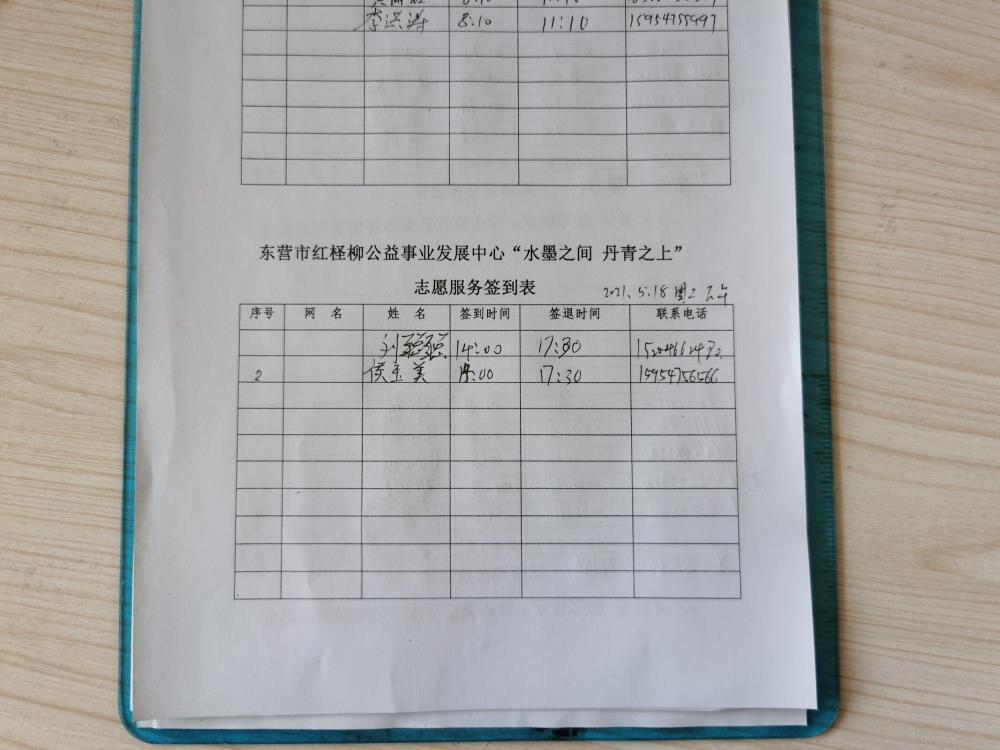 李洪涛 8:10 11:10 15954755997
东营市红柽柳公益事业发展中心“水墨之间 丹青之上”
志愿服务签到表 2021.5.18 周二 下午
序号 网 名 姓 名 签到时间 签退时间 联系电话
刘聪聪 14:00 17:30
2 侯玉美 14:00 17:30 15954756566